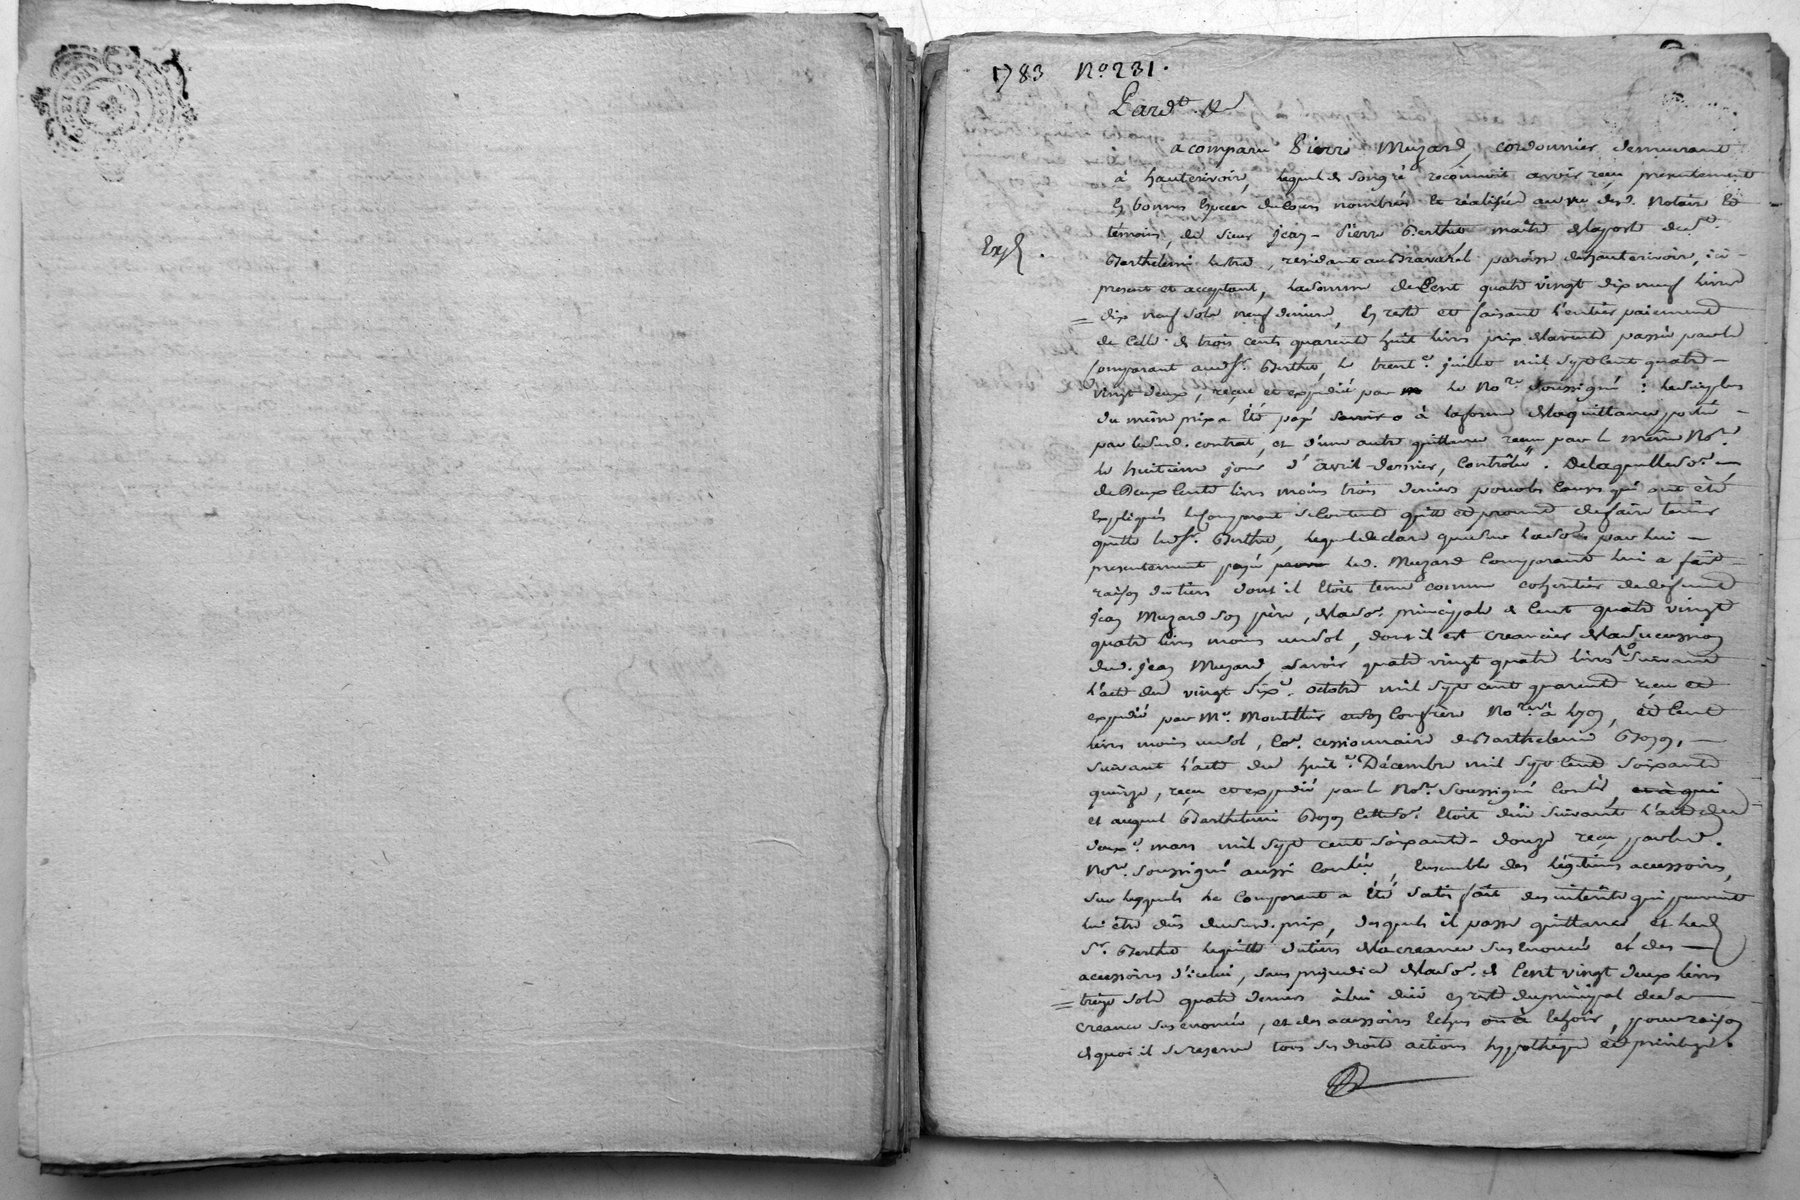 1783 No. 231.
Pardt
a comparu Pierre Muzard, cordonnier demeurant
à hauterivoire, lequel de son gré reconnoit avoir reçu presentement
En bonnes Especes de Cours nombrés et réalisées au vu des d. Notaire Et
temoins, du sieur Jean-Pierre Berthet maitre de la poste de
Barthelemi, residant au Bravaret paroisse de hauterivoire, ici
present et acceptant, la somme de Cent quatre vingt dix neuf livres
dix neuf sols neuf deniers, En reste et faisant l'entier paiement
de Celle de trois cents quarente huit livres prix de la vente passée par le
Comparant aud. sr. Berthet, le trente juillet mil sept Cent quatre
vingt deux, reçue et expediée par le Nore. soussigné : le surplus
du même prix a Eté payé à la forme de la quittance portée
par led. contrat, et d'une autre quittance reçue par le même Nore.
le huitieme jour d'avril dernier, Contrôlée. De laquelle some.
de Deux Cents livres moins trois deniers pour les Causes qui ont été
Expliquées le Comparant se Contente quitte et promet de faire tenir
quitte led. sr. Berthet, lequel declare que sur lad. some. par lui
presentement payée led. Muzard Comparant lui a fait
raison du tiers dont il Etoit tenu comme coheritier de defunt
Jean Muzard son père, de la some. principale de Cent quatre vingt
quatre livres moins un sol, dont il est creancier de la Succession
dud. Jean Muzard savoir quatre vingt quatre livres suivant
l'acte du vingt sixe. octobre mil sept cent quarente reçu et
expedié par Me. Montellier et son Confrère Nores. à Lyon, et Cent
livres moins un sol, Coe. cessionnaire de Barthelemi
suivant l'acte du huite. Décembre mil sept Cent soixante
quinze, reçu et expedié par le Nore. Soussigné Conlé., et à qui
et auquel Barthelemi Cette some. Etoit düe suivant l'acte du
deuxe. mars mil sept cent soixante-douze reçu par led.
Nore. soussigné aussi Conlé., Ensemble des légitimes accessoires,
sur lesquels le Comparant a Eté satisfait des interêts qui peuvent
lui être dûs du susd. prix, desquels il passe quittance et led.
Sr. Berthet le quitte du tiers de la creance sus Enoncée et des
accessoires d'icelui, sans prejudice de la some. de Cent vingt deux livres
treize sols quatre deniers à lui düe en reste du principal de sa
creance sus enoncée, et des accessoires Echus ou à Echoir, pour raison
de quoi il se reserve tous ses droits actions hypotheque et privilege.